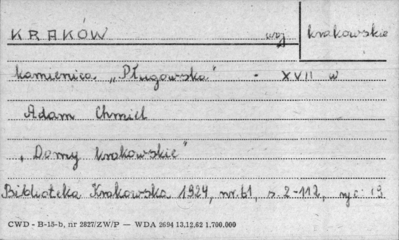 KRAKÓW woj krakowskie
kamienica „Pługowska" - XVII w
Adam Chmiel
„Domy krakowskie"
Biblioteka Krakowska 1924, nr. 61, s. 2-112, ryc. 19
CWD - B-15-b, nr 2827/ZW/P — WDA 2694 13.12.62 1.700.000